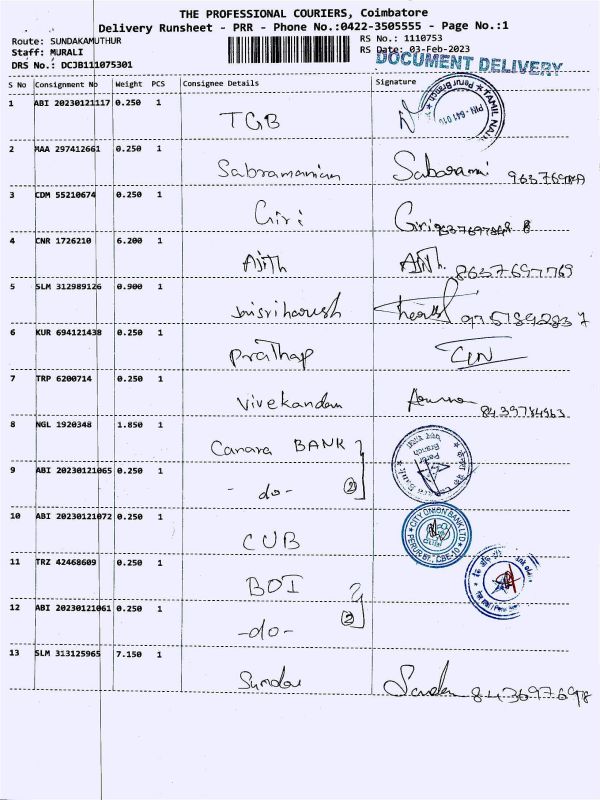 THE PROFESSIONAL COURIERS, Coimbatore
Delivery Runsheet - PRR - Phone No.:0422-3505555 - Page No.:1
Route: SUNDAKAMUTHUR RS No.: 1110753
Staff: MURALI RS Date: 03-Feb-2023
DRS No.: DCJB111075301 DOCUMENT DELIVERY
S No Consignment No Weight PCS Consignee Details Signature
1 ABI 20230121117 0.250 1 TGB
TAMIL NAD Perur Branch PIN-641 010
2 MAA 297412661 0.250 1 Sabramanian
3 CDM 55210674 0.250 1 Giri Giri
4 CNR 1726210 6.200 1 Ajith 8637697769
5 SLM 312989126 0.900 1 Jaisriharush
6 KUR 694121438 0.250 1 Prathap
7 TRP 6200714 0.250 1 Vivekandan
8 NGL 1920348 1.850 1 Canara BANK
9 ABI 20230121065 0.250 1 -do- (2)
10 ABI 20230121072 0.250 1 CUB
CITY UNION BANK LTD PERUR BT. CBE-10
11 TRZ 42468609 0.250 1 BOI
12 ABI 20230121061 0.250 1 -do- (2)
13 SLM 313125965 7.150 1 Sundar